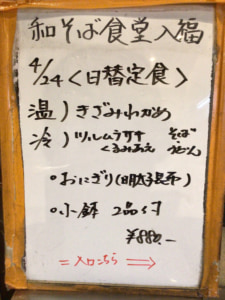 和そば食堂入福
4/24<日替定食>
温）きざみわかめ
冷）ツルムラサキ そば
くるみあえ うどん
。おにぎり(明太子昆布)
。小鉢 2品付
¥880.-
=入口こちら⇒